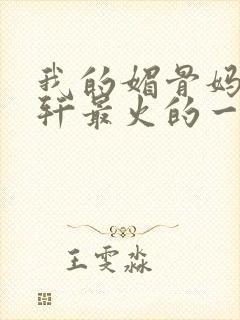 我的媚骨妈
轩最火的一
王雯淼